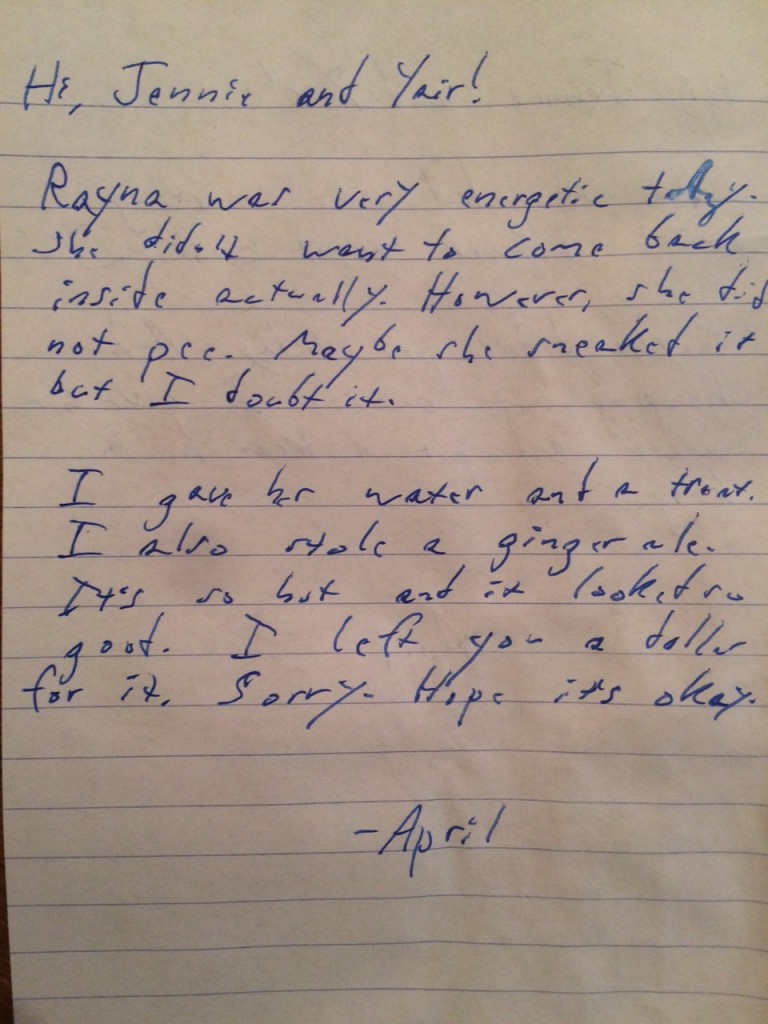 Hi, Jennie and Yair!
Rayna was very energetic today.
She didn't want to come back
inside actually. However, she did
not pee. Maybe she sneaked it
but I doubt it.
I gave her water and a treat.
I also stole a ginger ale.
It's so hot and it looked so
good. I left you a dollar
for it. Sorry. Hope it's okay.
-April